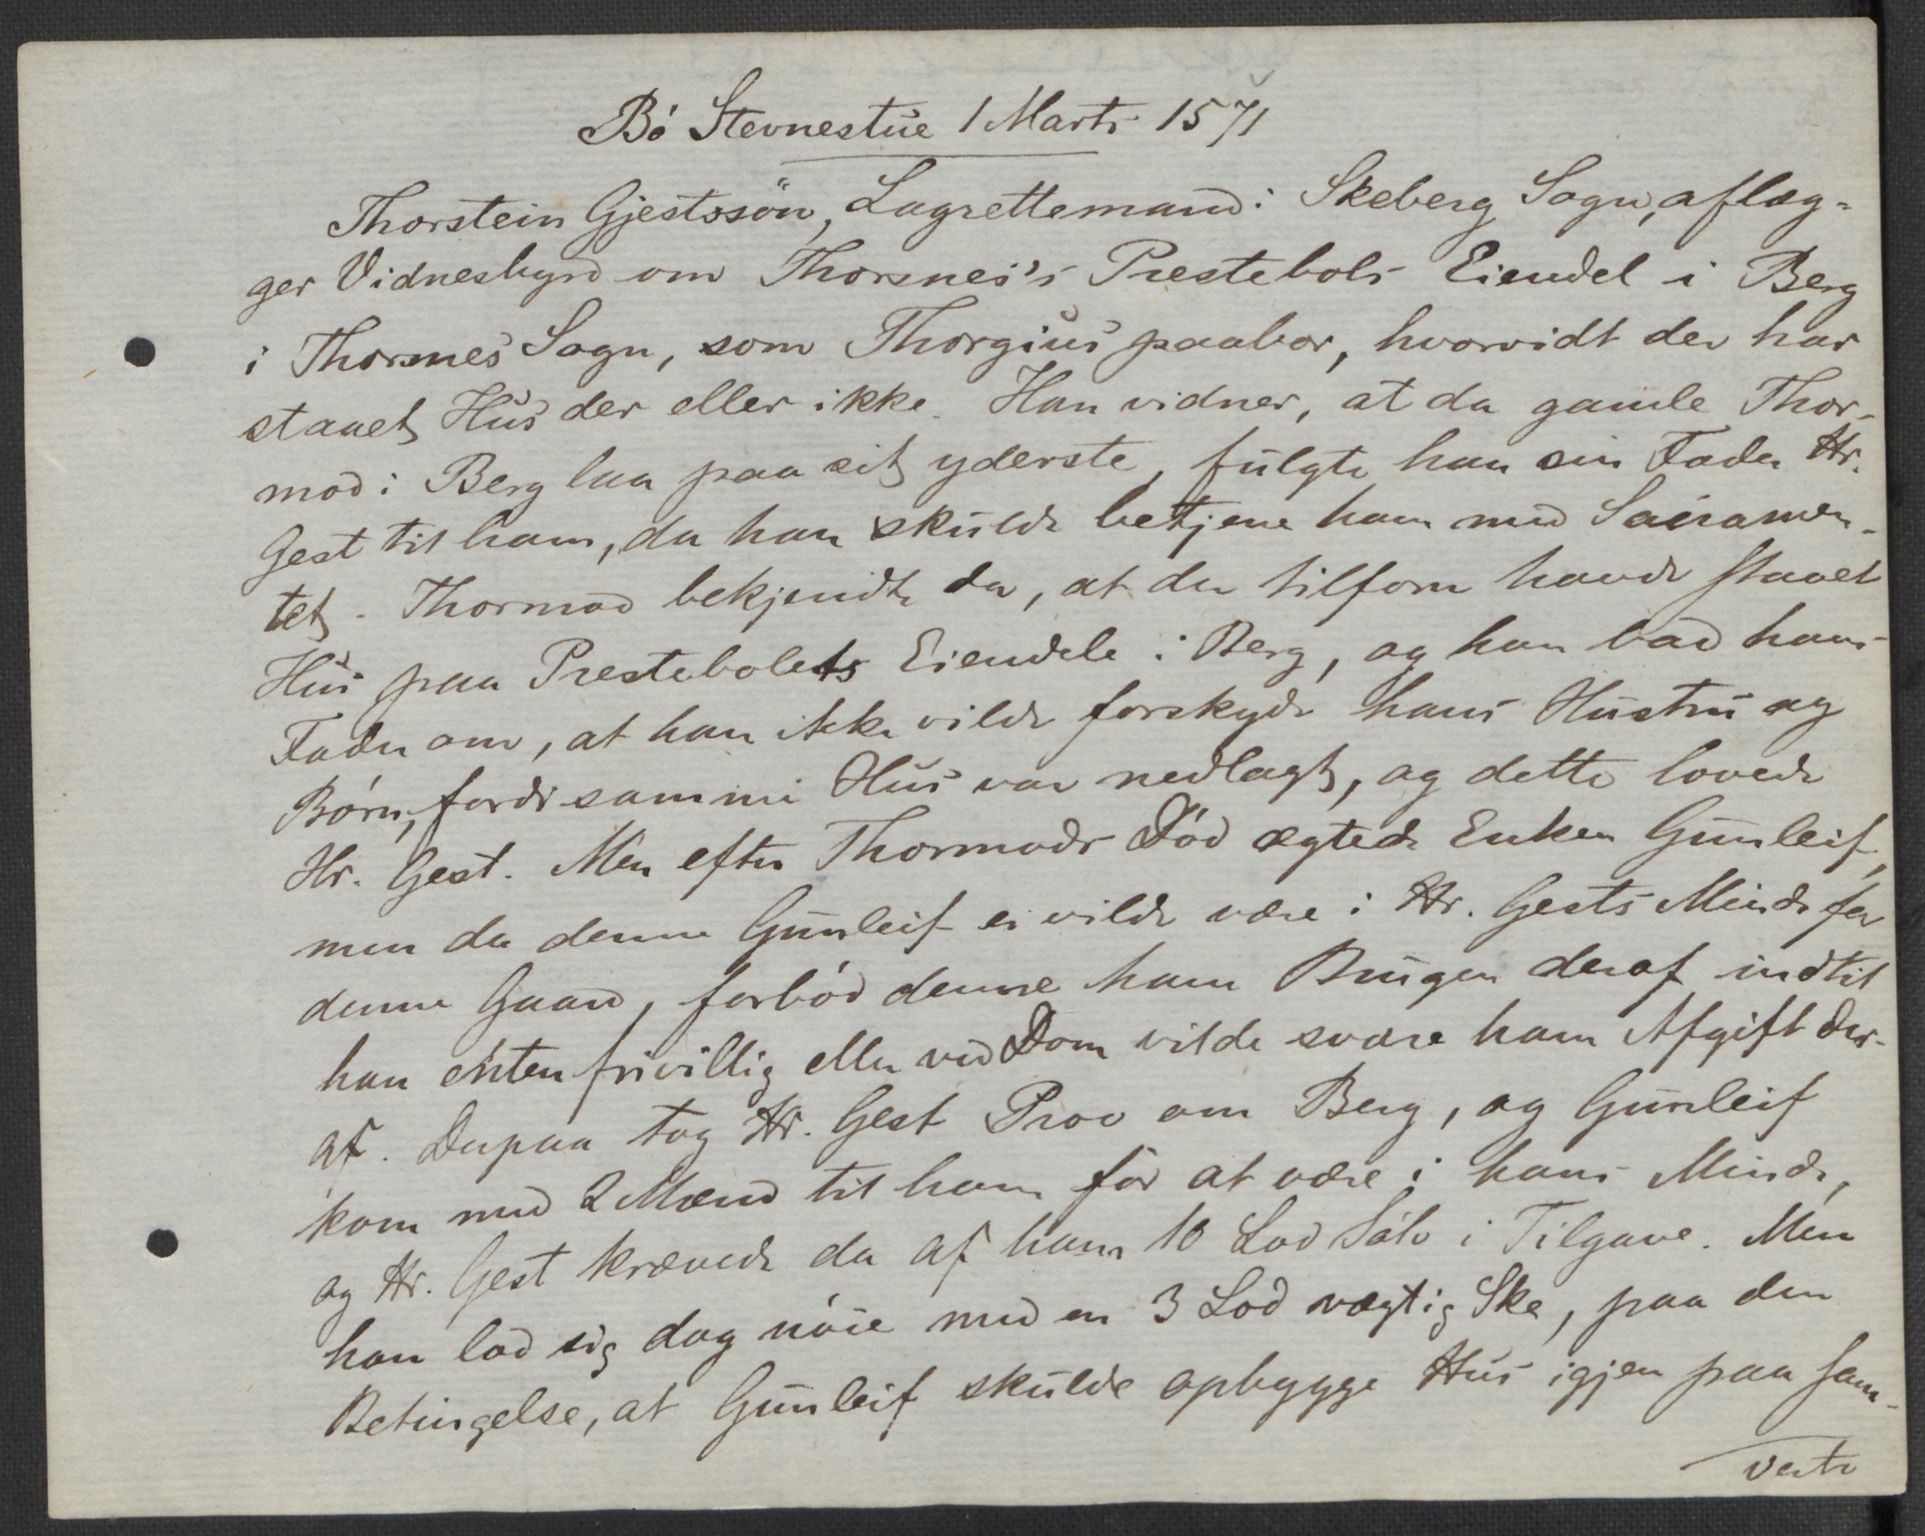 Bó Stevnestúe 1 Marts 1571
Thorstein Gjestssön, Lagrettemand i Skeberg Sogn, aflæg-
ger Vidnesbyrd om Thorsnes's Prestebols Eiendel i Berg
i Thorsnes Sogn, som Thorgius paabor, hvorvidt der har
staaet Hús der eller ikke. Han vidner, at da gamle Thor-
mod i Berg laa paa sit yderste, fúlgte han sin Fader Hr.
Gest til ham, da han skúlde betjene ham med Sacramen-
tet. Thormod bekjendte da, at der tilforn havde staaet
Hús paa Prestebolets Eiendele i Berg, og han bad hans
Fader om, at han ikke vilde forskyde hans Hústrú og
Børn, fordi samme Hús var nedlagt, og dette lovede
Hr. Gest. Men efter Thormods Død ægtede Enken Gúnleif,
men da denne Gúnleif ei vilde være i Hr. Gests Minde for
denne Gaard, forbød denne ham Brúgen deraf indtil
han enten frivillig eller ved Dom vilde svare ham Afgift der-
af. Derpaa tog Hr. Gest Prov om Berg, og Gúnleif
kom med 2 Mænd til ham for at være i hans Minde,
og Hr. Gest krævede da af ham 10 Lod Sølv i Tilgave. Men
han lod sig dog nøie med en 3 Lod vægtig Ske, paa den
Betingelse, at Gúnleif skúlde opbygge Hús igjen paa sam-
verte